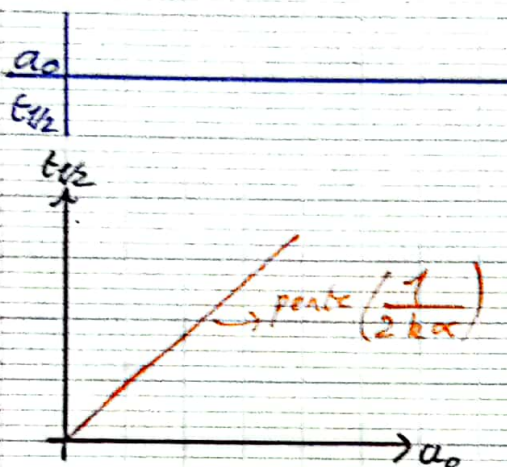 a₀
t₁/₂
t₁/₂
pente (1/2kα)
a₀